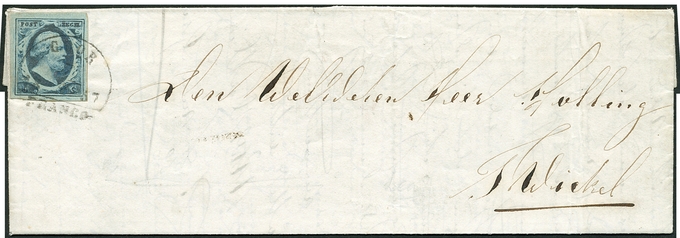 POST ZEGEL
FRANCO
Den Weledelen Heer Holling
Twickel